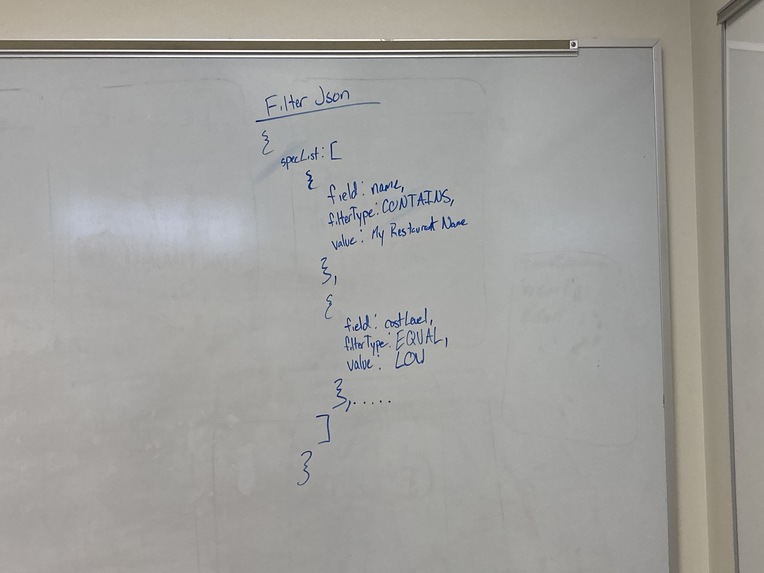 Filter Json
{
specList: [
{
field: name,
filterType: CONTAINS,
value: My Restaurant Name
},
{
field: costLevel,
filterType: EQUAL,
value: LOW
},.....
]
}